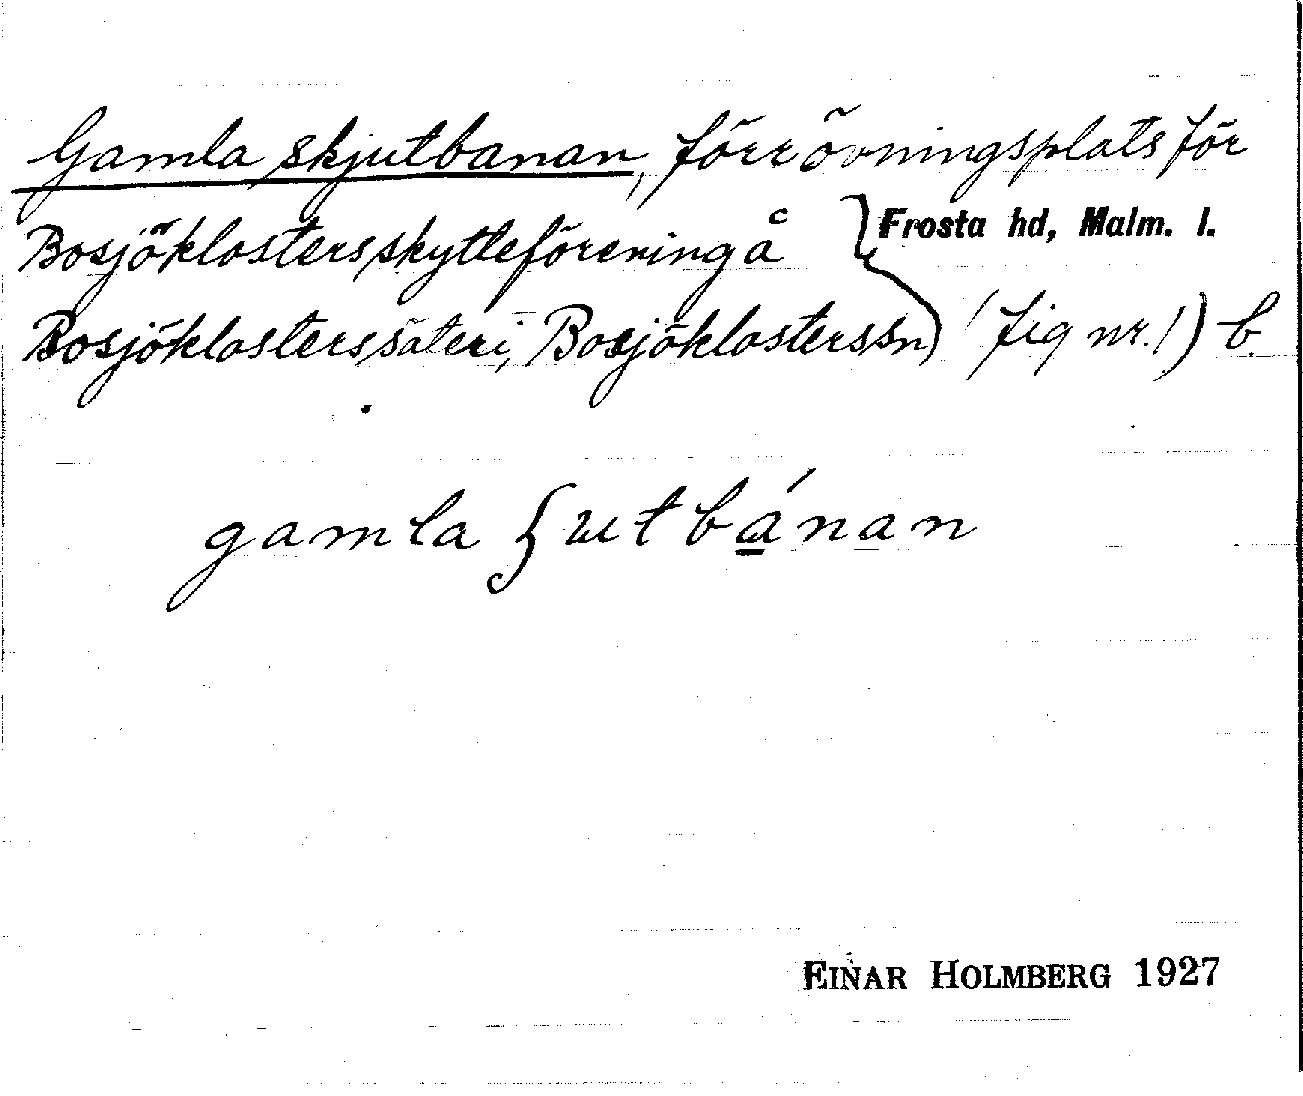 Gamla skjutbanan, förr övningsplats för
Bosjöklosters skytteförening å
Frosta hd, Malm. l.
Bosjöklosters säteri, Bosjöklosters sn (fig nr. 1) b.
gamla ʃutbánan
EINAR HOLMBERG 1927